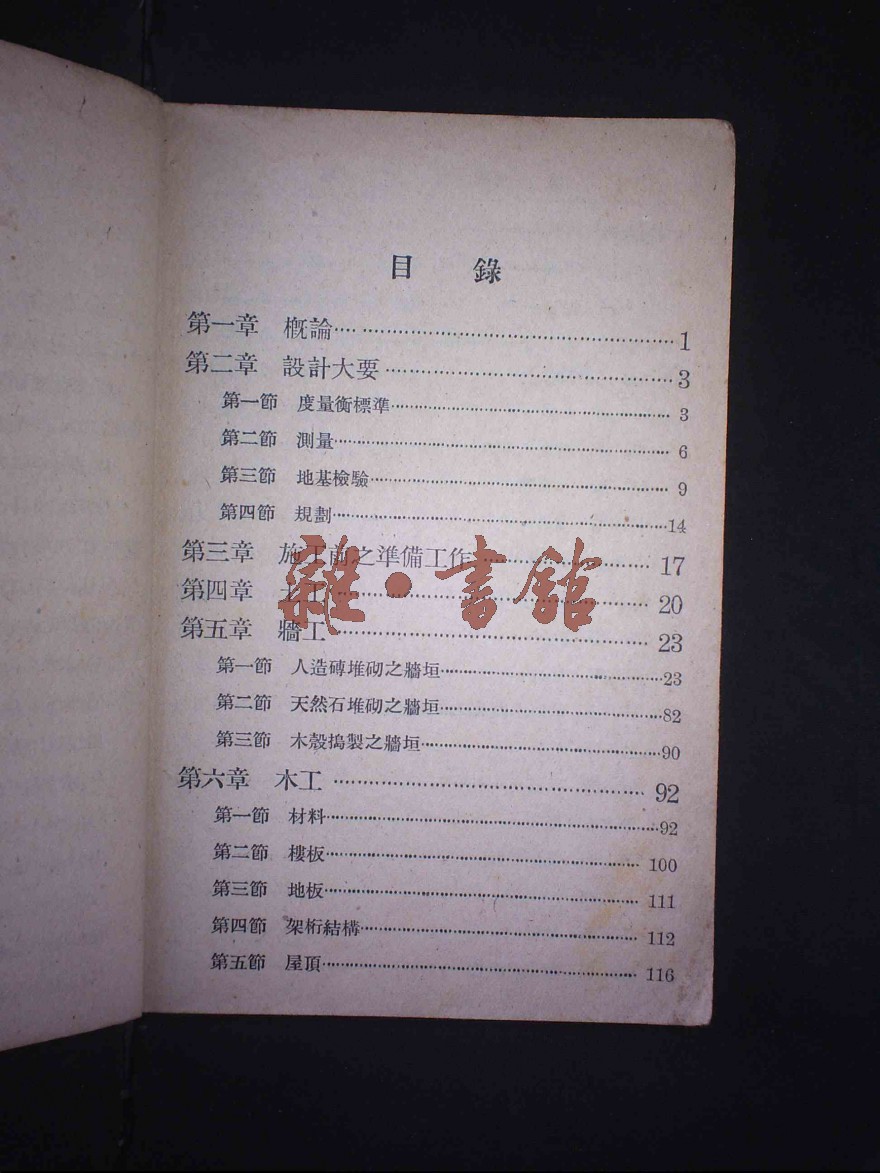 目 錄
第一章 概論 1
第二章 設計大要 3
第一節 度量衡標準 3
第二節 測量 6
第三節 地基檢驗 9
第四節 規劃 14
第三章 施工前之準備工作 17
第四章 土工 20
第五章 牆工 23
第一節 人造磚堆砌之牆垣 23
第二節 天然石堆砌之牆垣 82
第三節 木殼搗製之牆垣 90
第六章 木工 92
第一節 材料 92
第二節 樓板 100
第三節 地板 111
第四節 架桁結構 112
第五節 屋頂 116
雜·書館